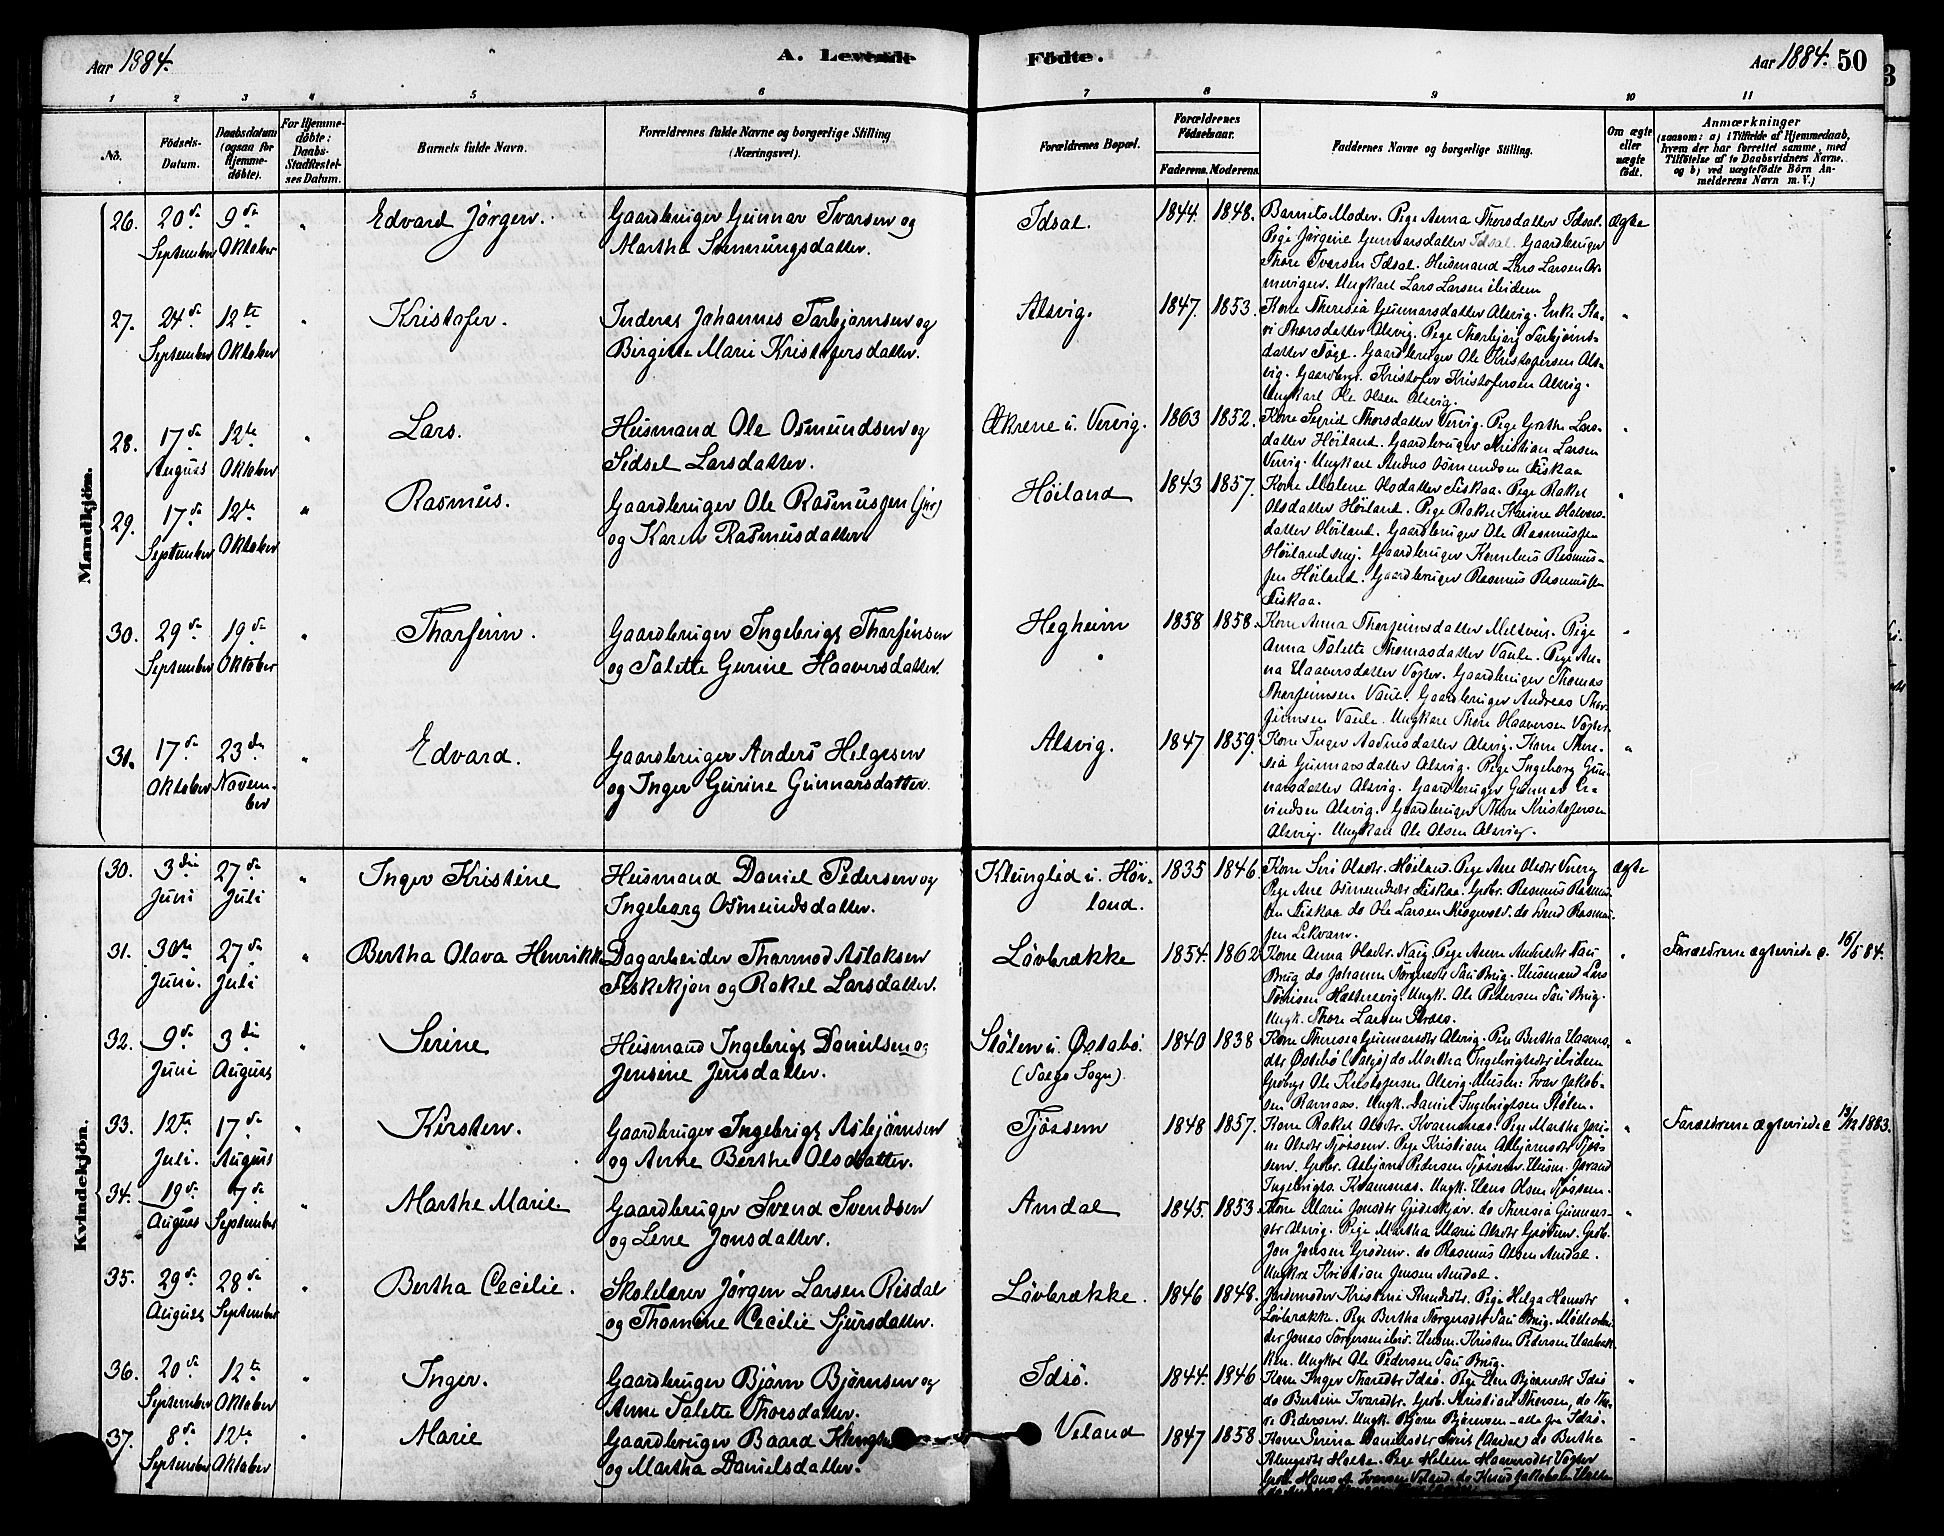 Aar 1884.
A. Levende
Födte.
Aar 1884.
50
1 2 3 4 5 6 7 8 9 10 11
No.
Födsels-
Datum.
Daabsdatum
(ogsaa for
Hjemme-
döbte).
For Hjemme-
döbte:
Daabs-
Stadfæstel-
ses Datum.
Barnets fulde Navn.
Forældrenes fulde Navne og borgerlige Stilling
(Næringsvei).
Forældrenes Bopæl.
Forældrenes
Födselsaar.
Faderens. Moderens.
Faddernes Navne og borgerlige Stilling.
Om ægte
eller
uægte
födt.
Anmærkninger
(saasom: a) i Tilfælde af Hjemmedaab,
hvem der har forrettet samme, med
Tilföielse af to Daabsvidners Navne,
og b) ved uægtefödte Börn An-
melderens Navn m. V.)
Mandkjön.
26. 20de September 9de Oktober " Edvard Jørgen.
Gaardbruger Gunnar Ivarsen og
Martha Sømmungsdatter.
Idsal. 1844. 1848.
Barnets Moder. Pige Anna Thorsdatter Idsal.
Pige Jørgine Gunnarsdatter Idsal. Gaardbruger
Thore Ivarsen Idsal. Husmand Lars Larsen
Ungkarl Lars Larsen ibidem
ægte
27. 24de September 12te Oktober " Kristofer.
Inderst Johannes Torbjørnsen og
Birgitte Marie Kristofersdatter.
Alsvig. 1847. 1853.
Kone Theresia Gunnarsdatter Alsvig. Enke
Thorsdatter Alsvig. Pige Thorbjørg Torbjørns-
datter Tøge. Gaardbruger Ole Kristofersen Als-
vig. Gaardbrgr. Kristofer Kristofersen Alsvig.
Ungkarl Ole Olsen Alsvig.
"
28. 17de August 12te Oktober " Lars.
Husmand Ole Osmundsen og
Sidsel Larsdatter.
Økrene u. Vervig. 1863 1852.
Kone Sigrid Thorsdatter Vervig. Pige Grethe Lars-
datter Höiland. Gaardbruger Kristian Larsen
Vervig. Ungkarl Osmundsen Fiskaa
"
29. 17de September 12te Oktober " Rasmus.
Gaardbruger Ole Rasmussen (jnr)
og Karen Rasmusdatter
Höiland 1843 1857.
Kone Malene Olsdatter Fiskaa. Pige Rakel
Olsdatter Höiland. Pige Rakel Karine Halvors-
datter Höiland. Gaardbruger Ole Rasmussen
Höiland senj. Gaardbruger Kornelius Rasmus-
sen Höiland. Gaardbruger Rasmus Rasmussen
Fiskaa.
"
30. 29de September 19de Oktober " Thorfinn.
Gaardbruger Ingebrigt Thorfinsen
og Talette Gurine Haaversdatter.
Hegheim 1858 1858.
Kone Anna Thorfinnsdatter Meltvig. Pige
Anna Talette Thomasdatter Vaule. Pige An-
na Haaversdatter Vögter. Gaardbruger Thomas
Thorfinnsen Vaule. Gaardbruger Andreas Thor-
finnsen Vaule. Ungkarl Thore Haaversen Vögter.
"
31. 17de Oktober 23de Novem-
ber " Edvard.
Gaardbruger Anders Helgesen
og Inger Gurine Gunnarsdatter.
Alsvig. 1847 1859.
Kone Inger Aadnesdatter Alsvig. Kone There-
sia Gunnarsdatter Alsvig. Pige Ingeborg Gun-
narsdatter Alsvig. Gaardbruger Gunnar Ei-
vindsen Alsvig. Gaardbruger Thore Kristofersen
Alsvig. Ungkarl Ole Olsen Alsvig.
"
Kvindekjön.
30. 3die Juni 27de Juli " Inger Kristine
Husmand Daniel Pedersen og
Ingeborg Osmundsdatter.
Klunglid u. Höi-
land. 1835 1846
Kone Siri Olsdtr Höiland. Pige Ane Olsdtr
Pige Ane Osmundsdtr Fiskaa. Grbr. Rasmus Rasmus-
sen Fiskaa do Ole Larsen do Svend Rasmus-
sen Lekvam.
ægte
31. 30te Juni. 27de Juli " Bertha Olava Henrikke
Dagarbeider Thormod Aslaksen
Fiskekjøn og Rakel Larsdatter.
Løvbrække 1854. 1862
Kone Anna Olsdtr. Pige Anna Tau
Brug do Johanne Torgersdtr Tau Brug. Husmand Lars
Ungk. Ole Pedersen Tau Brug.
Ungk. Thore Larsen
"
Forældrene ægteviede d. 16/5 84.
32. 9de Juni 3die August " Serine
Husmand Ingebrigt Danielsen og
Jensine Jensdatter.
Stölen u. Østabö.
(Torgs Sogn). 1840 1838
Kone Theresia Gunnarsdtr Alsvig. Pige Bertha
Østebö do Martha Ingebrigtsdtr ibidem
Grdbrgr Ole Kristofersen Alsvig. Ivar Jakob-
sen Ramsaas. Ungk. Daniel Ingebrigtsen Stölen.
"
33. 12te Juli. 17de August " Kirsten.
Gaardbruger Ingebrigt Asbjørnsen
og Anne Berthe Olsdatter.
Tjössem 1848 1857.
Kone Rakel Olsdtr. Kvamsnæs. Pige Martha
Olsdtr Tjössem. Pige Kristiane Asbjørnsdtr Tjös-
sem. Grbr. Asbjørn Pedersen Tjössem.
Ingebrigts. Kvamsnæs. Ungk. Hans Olsen Tjössem.
"
Forældrene ægteviede 1883.
34. 19de August 7de September " Marthe Marie.
Gaardbruger Svend Svendsen
og Lene Jonsdatter.
Amdal 1845. 1853
Kone Marie Jonsdtr do Theresia Gunnars-
dtr Alsvig. Pige Martha Marie Olsdtr Grödem. Grbr.
Jon Jensen Grödem. do Rasmus Olsen Amdal.
Ungkrl Kristian Jensen Amdal.
"
35. 29de August 28de September " Bertha Cecilie.
Skolelærer Jørgen Larsen Risdal
og Thomine Cecilie Sjursdatter.
Løvbrække. 1846 1848.
Jordemoder Kristine Knudsdtr. Pige Helga Hansdtr
Løvbrække. Pige Bertha Torgersdtr Tau Brug.
Jonas Torgersen ibid. Husm. Kristen Pedersen
Ungkrl Ole Pedersen Tau Brug.
"
36. 20de September 12te Oktober " Inger.
Gaardbruger Bjørn Bjørnsen og
Anne Talette Thorsdatter.
Idsö. 1844. 1846
Kone Inger Thoresdtr Idsö. Pige Elen Bjørnsdtr Idsö
do Bertine Ivarsdtr. Grbr. Kristian Thorsen, do Tho-
re Pedersen. Ungk. Bjørn Bjørnsen - alle fra Idsö.
"
37. 8de September 12te Oktober " Marie
Gaardbruger Baard
og Martha Danielsdatter.
Veland 1847 1858
Kone Serina Danielsdtr (Aardal) do Bertha
Holte. Pige Helene Haaversdtr Vögter
Grbr. Hans A. Ivarsen Veland. do Knud Jakobsen Holte